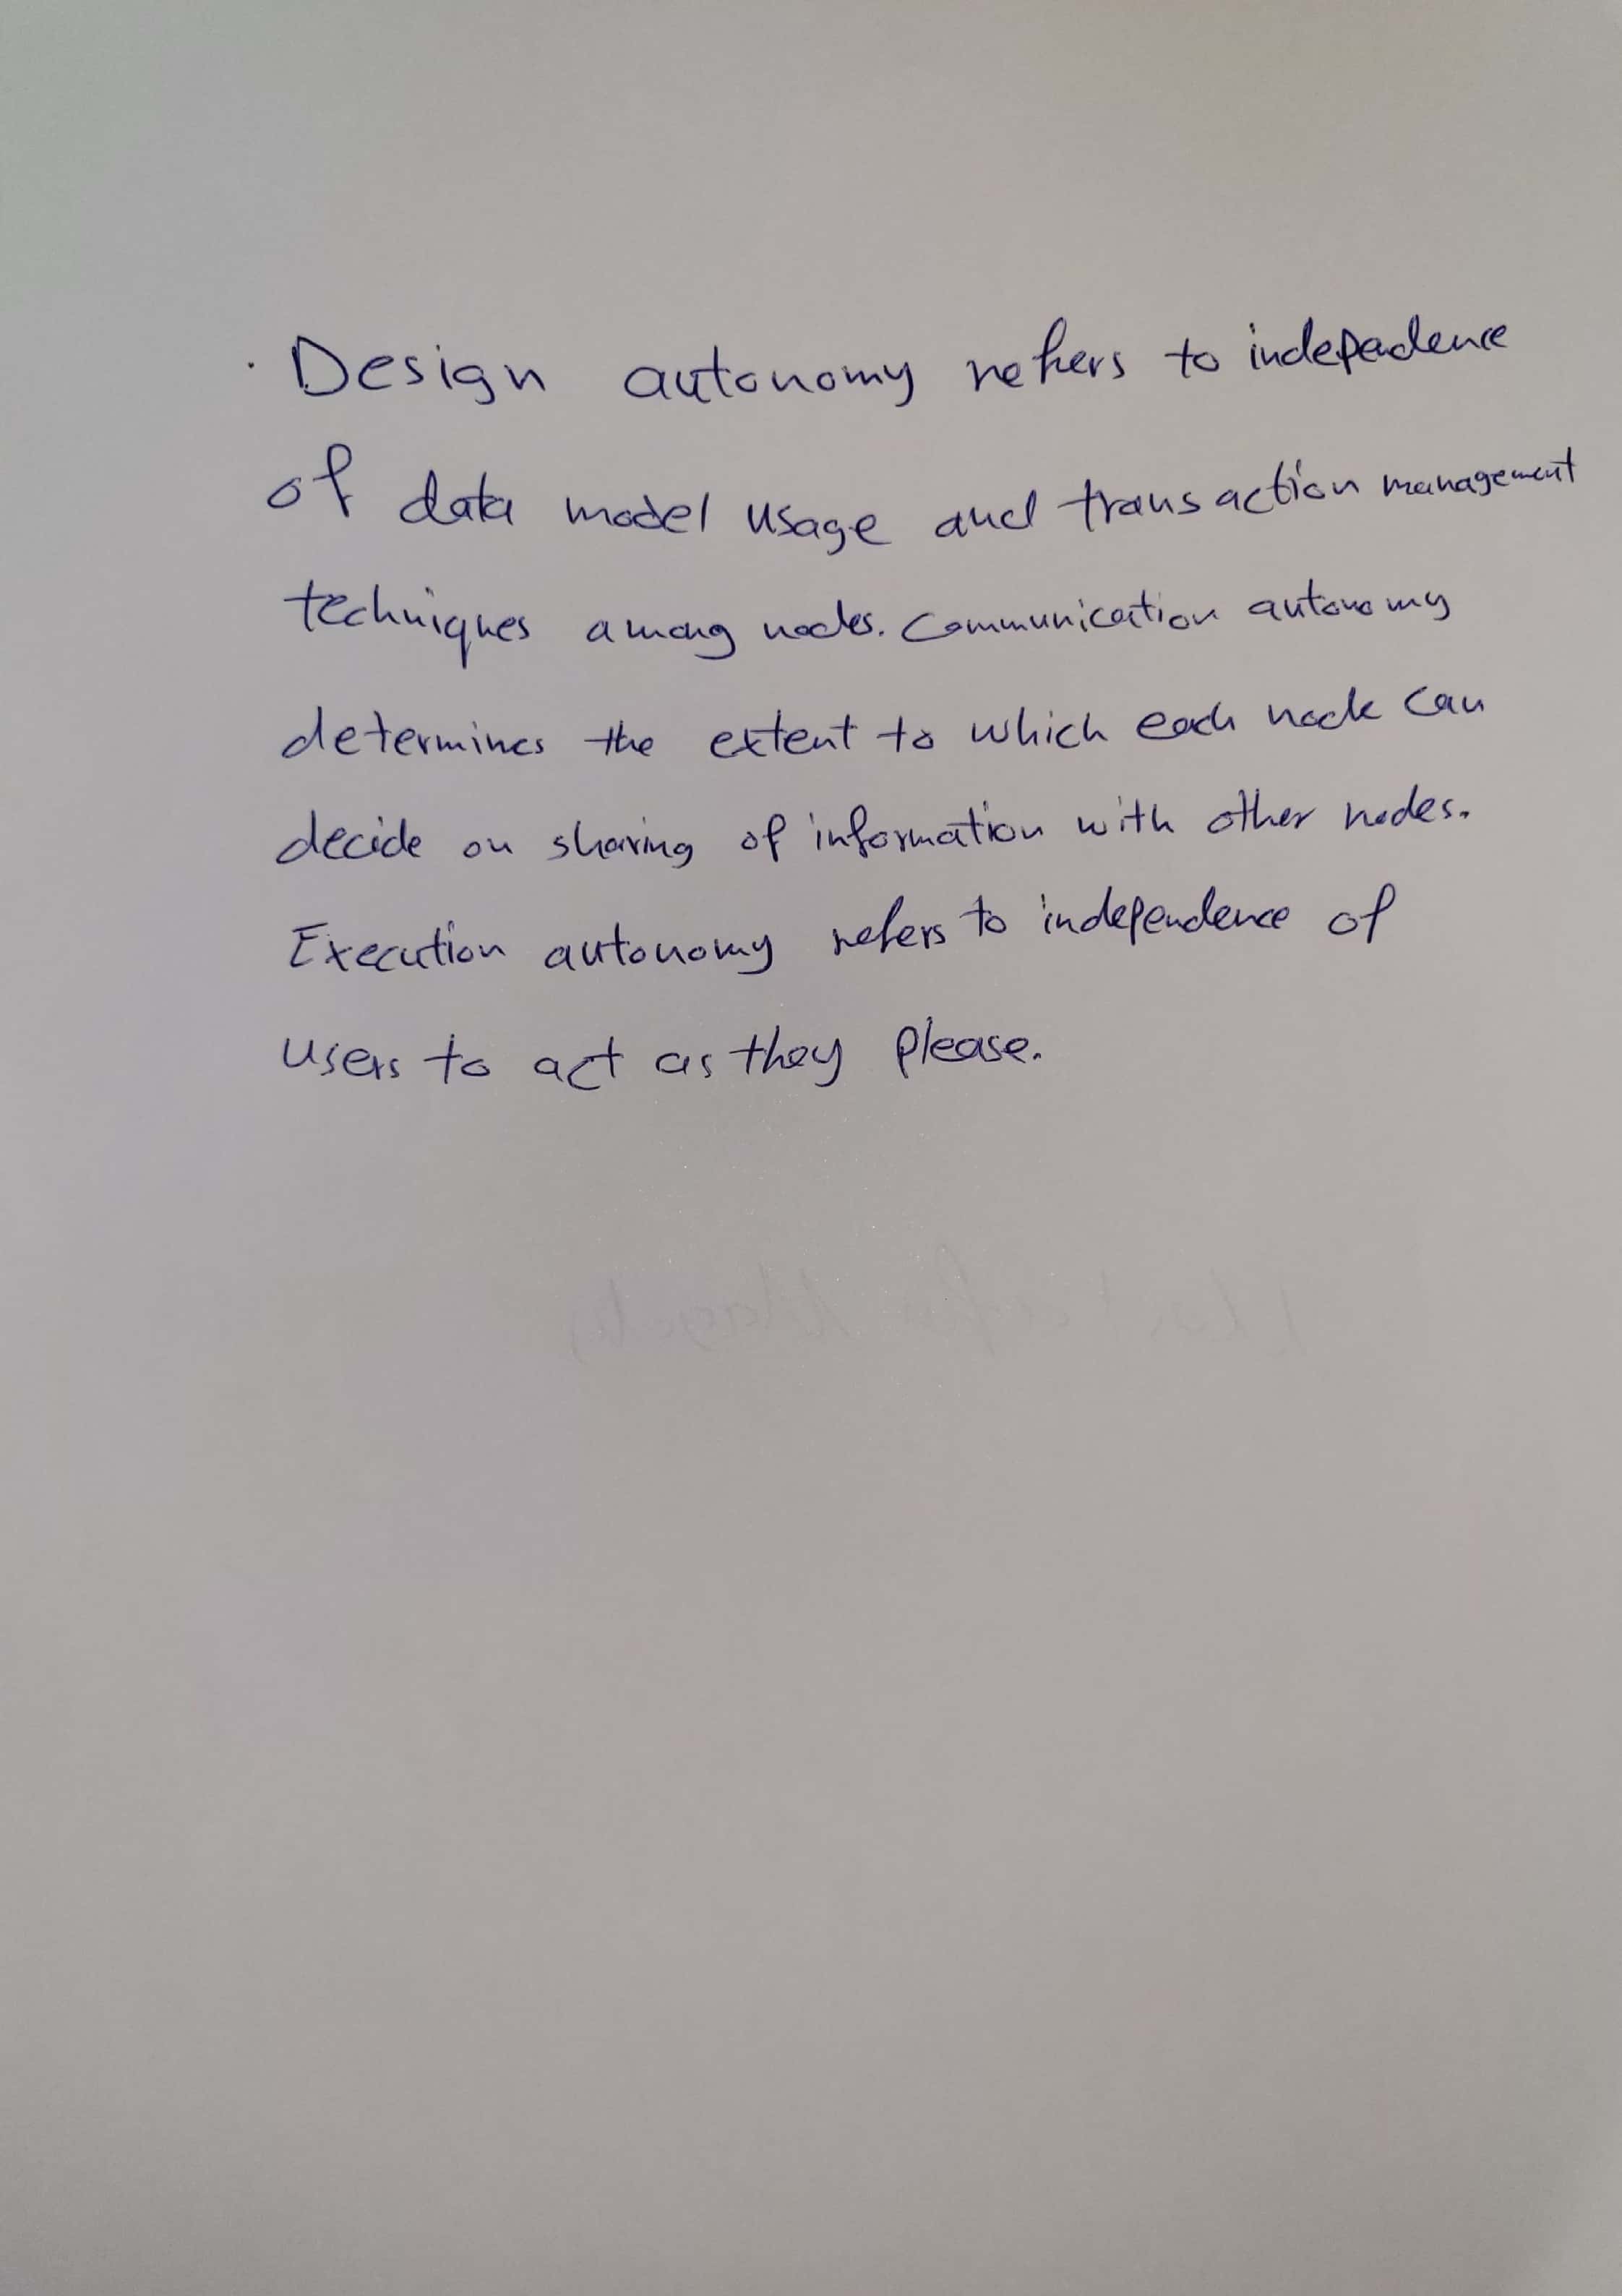 . Design autonomy refers to independence
of data model usage and transaction management
techniques among nodes. Communication autonomy
determines the extent to which each node can
decide on sharing of information with other nodes.
Execution autonomy refers to independence of
users to act as they please.